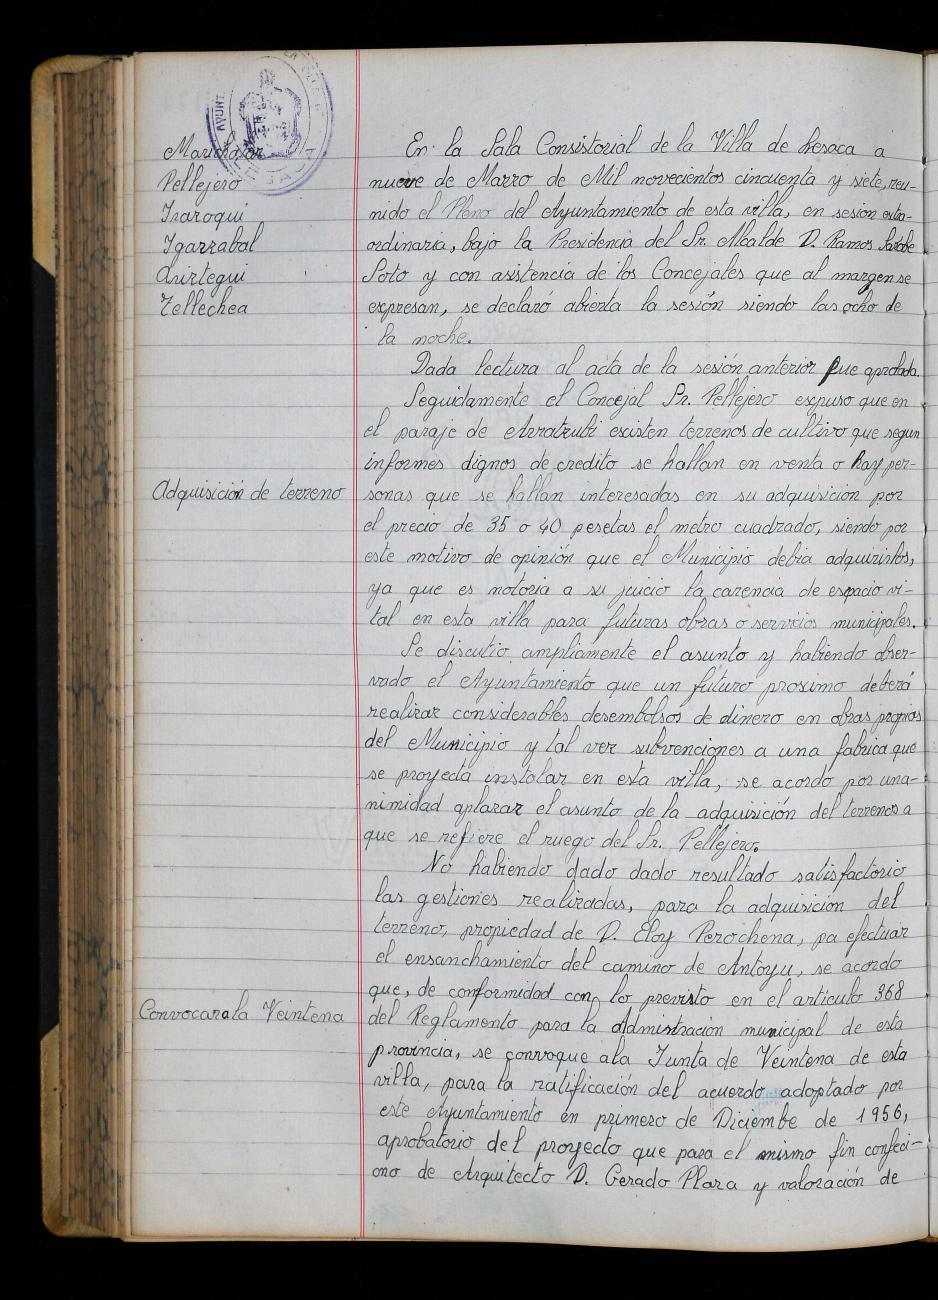 Marichalar
Pellejero
Iraroqui
Igarzabal
Avirtegui
Tellechea
En la Sala Consistorial de la Villa de Lesaca a
nueve de Marzo de Mil novecientos cincuenta y siete, reu-
nido el Pleno del Ayuntamiento de esta villa, en sesion extra-
ordinaria, bajo la Presidencia del Sr. Alcalde D. Ramos Sarabe
Soto y con asistencia de los Concejales que al margen se
expresan, se declaró abierta la sesión siendo las ocho de
la noche.
Dada lectura al acta de la sesión anterior fue aprobada.
Seguidamente el Concejal Sr. Pellejero expuso que en
el paraje de Arratzubi existen terrenos de cultivo que segun
informes dignos de credito se hallan en venta o hay per-
Adquisición de terreno
sonas que se hallan interesadas en su adquisicion por
el precio de 35 o 40 pesetas el metro cuadrado, siendo por
este motivo de opinión que el Municipio debia adquirirlos,
ya que es notoria a su juicio la carencia de espacio vi-
tal en esta villa para futuras obras o servicios municipales.
Se discutio ampliamente el asunto y habiendo obser-
vado el Ayuntamiento que un futuro proximo deberá
realizar considerables desembolsos de dinero en obras propias
del Municipio y tal vez subvenciones a una fabrica que
se proyecta instalar en esta villa, se acordo por una-
nimidad aplazar el asunto de la adquisición del terrenos a
que se refiere el ruego del Sr. Pellejero.
No habiendo dado dado resultado satisfactorio
las gestiones realizadas, para la adquisición del
terreno, propiedad de D. Eloy Perochena, pa efectuar
el ensanchamiento del camino de Antoyu, se acordo
que, de conformidad con lo previsto en el articulo 368
Convocar a la Veintena
del Reglamento para la Administracion municipal de esta
provincia, se convoque a la Junta de Veintena de esta
villa, para la ratificación del acuerdo adoptado por
este Ayuntamiento en primero de Diciembe de 1956,
aprobatorio del proyecto que para el mismo fin confeci-
ono de Arquitecto D. Gerado Plaza y valoración de